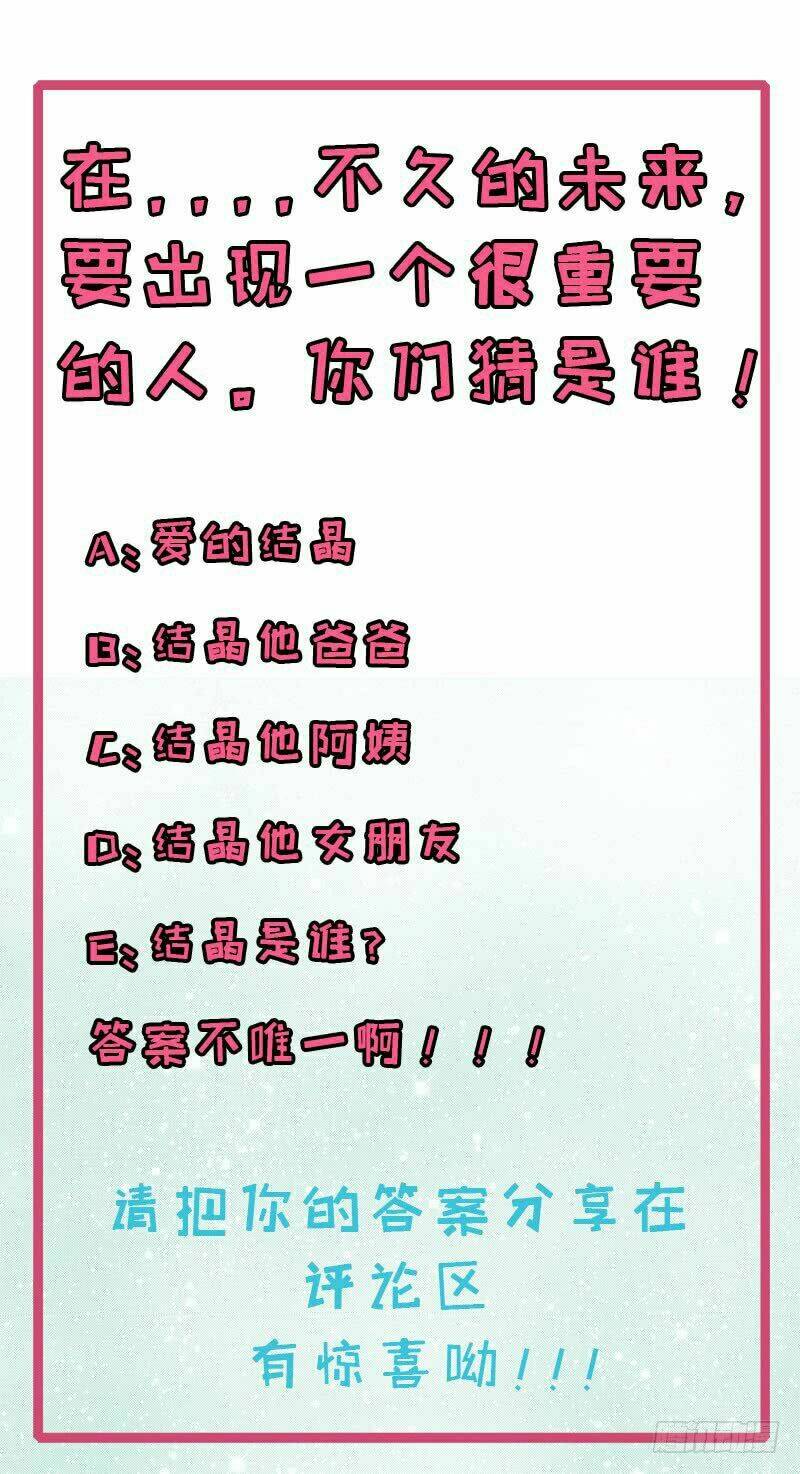 在....不久的未来,
要出现一个很重要
的人。你们猜是谁！
A:爱的结晶
B:结晶他爸爸
C:结晶他阿姨
D:结晶他女朋友
E:结晶是谁?
答案不唯一啊！！！
请把你的答案分享在
评论区
有惊喜呦!!!
腾讯动漫